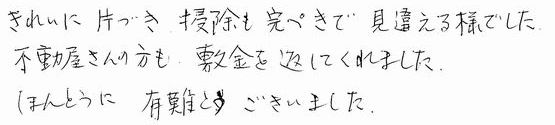 きれいに 片づき 掃除も 完ぺきで 見違える様でした.
不動屋さんの方も 敷金を 返してくれました.
ほんとうに 有難とう ございました.